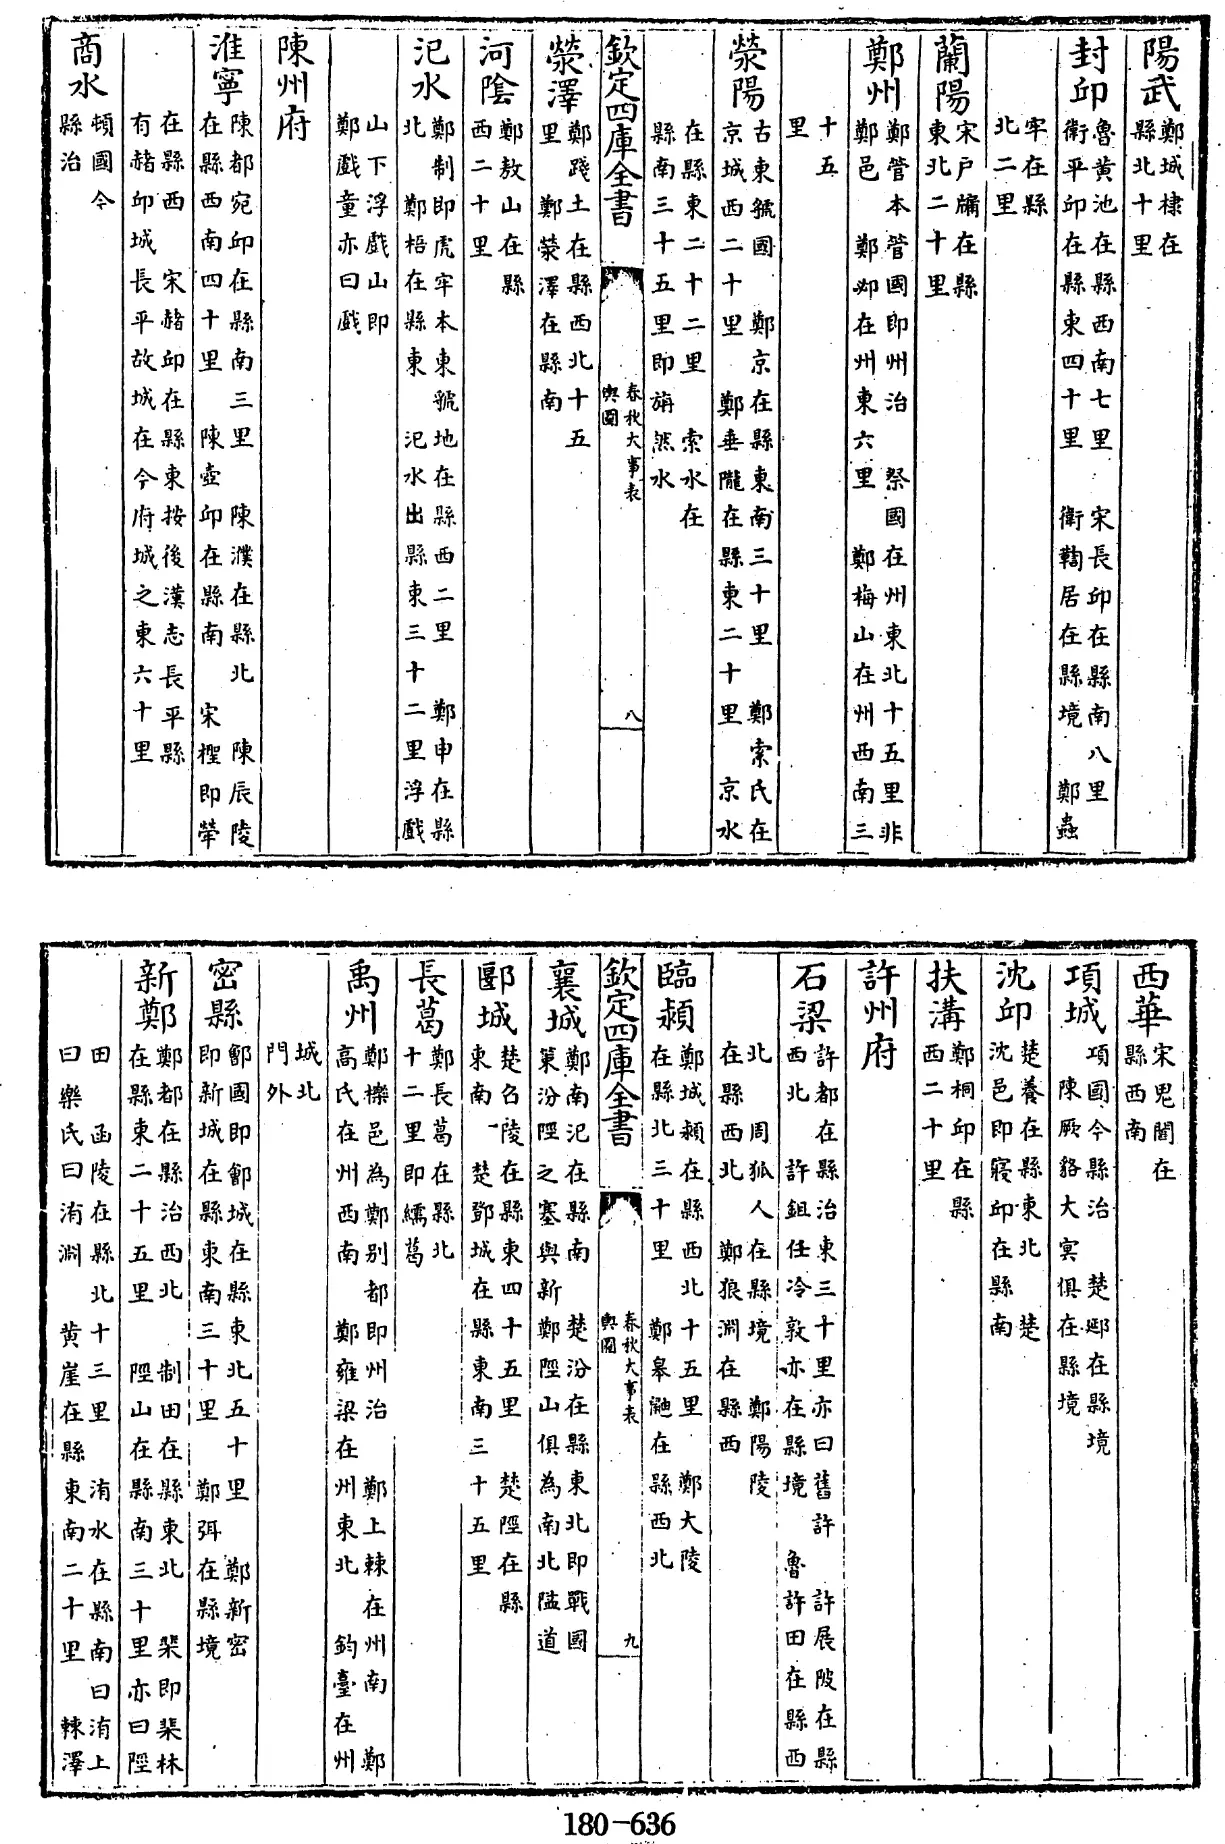 陽武 鄭城棣在
縣北十里
封邱 魯黄池在縣西南七里 宋長邱在縣南八里
衞平邱在縣東四十里 衞鞫居在縣境 鄭蟲
牢在縣
北二里
蘭陽 宋戸牖在縣
東北二十里
鄭州 鄭管本管國即州治 祭國在州東北十五里非
鄭邑 鄭邲在州東六里 鄭梅山在州西南三
十五
里
滎陽 古東虢國 鄭京在縣東南三十里 鄭索氏在
京城西二十里 鄭垂隴在縣東二十里 京水
在縣東二十二里 索水在
縣南三十五里即旃然水
欽定四庫全書
春秋大事表
輿圖
八
滎澤 鄭踐土在縣西北十五
里 鄭滎澤在縣南
河陰 鄭敖山在縣
西二十里
汜水 鄭制即虎牢本東虢地在縣西二里 鄭申在縣
北 鄭梧在縣東 汜水出縣東三十二里浮戲
山下浮戲山即
鄭戲童亦曰戲
陳州府
淮寧 陳都宛邱在縣南三里 陳濮在縣北 陳辰陵
在縣西南四十里 陳壺邱在縣南 宋檉即犖
在縣西 宋赭邱在縣東按後漢志長平縣
有赭邱城長平故城在今府城之東六十里
商水 頓國今
縣治
西華 宋鬼閻在
縣西南
項城 項國今縣治 楚郾在縣境
陳厥貉大冥俱在縣境
沈邱 楚養在縣東北 楚
沈邑即寢邱在縣南
扶溝 鄭桐邱在縣
西二十里
許州府
石梁 許都在縣治東三十里亦曰舊許 許展陂在縣
西北 許鉏任冷敦亦在縣境 魯許田在縣西
北 周狐人在縣境 鄭陽陵
在縣西北 鄭狼淵在縣西
臨潁 鄭城潁在縣西北十五里 鄭大陵
在縣北三十里 鄭皋鼬在縣西北
欽定四庫全書
春秋大事表
輿圖
九
襄城 鄭南汜在縣南 楚汾在縣東北即戰國
策汾陘之塞與新鄭陘山俱為南北隘道
郾城 楚召陵在縣東四十五里 楚陘在縣
東南 楚鄧城在縣東南三十五里
長葛 鄭長葛在縣北
十二里即繻葛
禹州 鄭櫟邑為鄭别都即州治 鄭上棘在州南 鄭
高氏在州西南 鄭雍梁在州東北 鈞臺在州
城北
門外
密縣 鄶國即鄶城在縣東北五十里 鄭新密
即新城在縣東南三十里 鄭弭在縣境
新鄭 鄭都在縣治西北 制田在縣東北 棐即棐林
在縣東二十五里 陘山在縣南三十里亦曰陘
田 函陵在縣北十三里 洧水在縣南曰洧上
曰樂氏曰洧淵 黄崖在縣東南二十里 棘澤
180-636